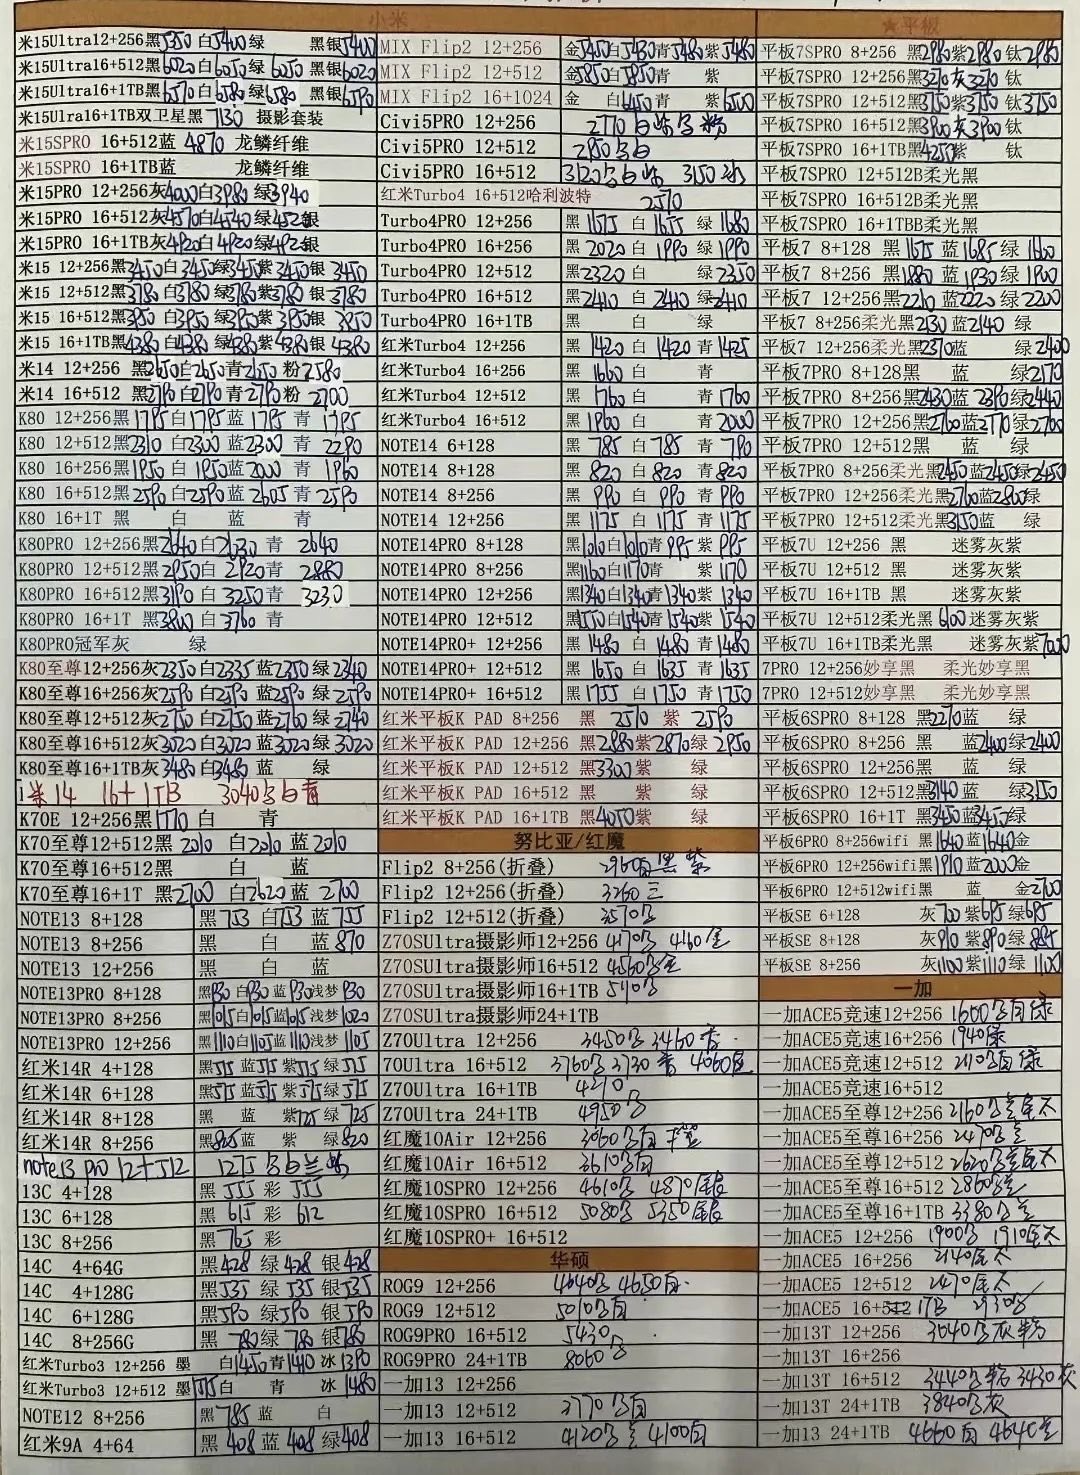 小米
米15Ultra12+256黑5350 白5400绿 黑银5400
米15Ultra16+512黑6020白6050绿6050 黑银6020
米15Ultra16+1TB黑6570白6580绿6580 黑银6590
米15Ulra16+1TB双卫星黑7130 摄影套装
米15SPRO 16+512蓝 4870 龙鳞纤维
米15SPRO 16+1TB蓝 龙鳞纤维
米15PRO 12+256灰4000白3980绿3940
米15PRO 16+512灰4570白4540绿4520银
米15PRO 16+1TB灰4920白4920绿4920银
米15 12+256黑3450白3450绿3450紫3450银 3450
米15 12+512黑3780白3780绿3780紫3780银 3780
米15 16+512黑3950白3950绿3950紫3950银 3950
米15 16+1TB黑4380白4380绿4380紫4380银 4380
米14 12+256 黑2650白2650青2650粉 2580
米14 16+512 黑2790白2790青2790粉 2700
K80 12+256黑1795白1795蓝1795青 1795
K80 12+512黑2310白2300蓝2300青 2290
K80 16+256黑1950白1950蓝2000青 1960
K80 16+512黑2590白2590蓝2605青 2590
K80 16+1T 黑 白 蓝 青
K80PRO 12+256黑2640白2630青 2640
K80PRO 12+512黑2950白2920青 2880
K80PRO 16+512黑3190白 3250青 3230
K80PRO 16+1T 黑3800白 3760青
K80PRO冠军灰 绿
K80至尊12+256灰2350白2335蓝2350绿2340
K80至尊16+256灰2590白2590蓝2590绿2590
K80至尊12+512灰2750白2750蓝2760绿2740
K80至尊16+512灰3020白3020蓝3020绿3020
K80至尊16+1TB灰3480白3480蓝 绿
米14 16+1TB 3040 白青
K70E 12+256黑1770白 青
K70至尊12+512黑2010 白2010蓝2010
K70至尊16+512黑 白 蓝
K70至尊16+1T 黑2700 白2620蓝 2700
NOTE13 8+128 黑753 白753蓝755
NOTE13 8+256 黑 白 蓝870
NOTE13 12+256 黑 白 蓝
NOTE13PRO 8+128 黑930白930蓝930浅梦930
NOTE13PRO 8+256 黑1015白1015蓝1015浅梦1020
NOTE13PRO 12+256 黑1110白1105蓝1110浅梦1105
红米14R 4+128 黑515蓝515紫515绿515
红米14R 6+128 黑575蓝575紫575绿575
红米14R 8+128 黑 蓝 紫725绿725
红米14R 8+256 黑825蓝 紫 绿820
note13 pro 12+512 1275
13C 4+128 黑555彩555
13C 6+128 黑615彩612
13C 8+256 黑765彩
14C 4+64G 黑428绿428银428
14C 4+128G 黑535绿535银535
14C 6+128G 黑590绿590银590
14C 8+256G 黑780绿780银780
红米Turbo3 12+256 墨 白1450青1410冰1390
红米Turbo3 12+512 墨1515白 青 冰1480
NOTE12 8+256 黑785蓝 白
红米9A 4+64 黑408蓝408绿408
MIX Flip2 12+256 金5450白5430青5480紫5480
MIX Flip2 12+512 金5850白5850青 紫
MIX Flip2 16+1024 金 白6450青 紫6500
Civi5PRO 12+256 2770
Civi5PRO 12+512 2950
Civi5PRO 16+512 3120 3150
红米Turbo4 16+512哈利波特 2570
Turbo4PRO 12+256 黑1675白1675绿1680
Turbo4PRO 16+256 黑2020白1990绿1990
Turbo4PRO 12+512 黑2320 绿2350
Turbo4PRO 16+512 黑2410白2410绿2410
Turbo4PRO 16+1TB 黑 白 绿
红米Turbo4 12+256 黑1420白1420青1425
红米Turbo4 16+256 黑1660白 青
红米Turbo4 12+512 黑1760 青1760
红米Turbo4 16+512 黑1960白 青2000
NOTE14 6+128 黑785白785青790
NOTE14 8+128 黑820白820青820
NOTE14 8+256 黑990白990青990
NOTE14 12+256 黑1175白1175青1175
NOTE14PRO 8+128 黑1010白1010青995紫995
NOTE14PRO 8+256 黑1160白1170青 紫1170
NOTE14PRO 12+256 黑1340白1340青1340紫1340
NOTE14PRO 12+512 黑1550白1540青1540紫1540
NOTE14PRO+ 12+256 黑1480白1480青1480
NOTE14PRO+ 12+512 黑1650白1635青1635
NOTE14PRO+ 16+512 黑1755白1750青1750
红米平板K PAD 8+256 黑 2510紫 2590
红米平板K PAD 12+256 黑2880紫2870绿 2950
红米平板K PAD 12+512 黑3300紫 绿
红米平板K PAD 16+512 黑 紫 绿
红米平板K PAD 16+1TB 黑4050紫 绿
努比亚/红魔
Flip2 8+256(折叠) 2960 黑 紫
Flip2 12+256(折叠) 3260
Flip2 12+512(折叠) 3570
Z70SUltra摄影师12+256 4170 4160
Z70SUltra摄影师16+512 4560
Z70SUltra摄影师16+1TB 5140
Z70SUltra摄影师24+1TB
Z70Ultra 12+256 3450 3460
70Ultra 16+512 3760 3730 4060
Z70Ultra 16+1TB 4270
Z70Ultra 24+1TB 4950
红魔10Air 12+256 3060
红魔10Air 16+512 3610
红魔10SPRO 12+256 4610 4870
红魔10SPRO 16+512 5080 5350
红魔10SPRO+ 16+512
华硕
ROG9 12+256 4640 4650白
ROG9 12+512 5010
ROG9PRO 16+512 5430
ROG9PRO 24+1TB 8060
一加13 12+256
一加13 12+512 3770
一加13 16+512 4120 4100白
★平板
平板7SPRO 8+256 黑2980紫2980钛2980
平板7SPRO 12+256黑3270灰3270钛
平板7SPRO 12+512黑3750紫3750钛3750
平板7SPRO 16+512黑3900灰3900钛
平板7SPRO 16+1TB黑4250紫 钛
平板7SPRO 12+512B柔光黑
平板7SPRO 16+512B柔光黑
平板7SPRO 16+1TBB柔光黑
平板7 8+128 黑1675蓝1685绿1660
平板7 8+256 黑1880蓝1930绿1900
平板7 12+256黑2210蓝2220绿2200
平板7 8+256柔光黑2130蓝2140绿
平板7 12+256柔光黑2370蓝 绿2400
平板7PRO 8+128黑 蓝 绿2170
平板7PRO 8+256黑2430蓝2390绿2440
平板7PRO 12+256黑2760蓝2770绿2760
平板7PRO 12+512黑 蓝 绿
平板7PRO 8+256柔光黑2450蓝2450绿2450
平板7PRO 12+256柔光黑2760蓝2800绿
平板7PRO 12+512柔光黑3150蓝 绿
平板7U 12+256 黑 迷雾灰紫
平板7U 12+512 黑 迷雾灰紫
平板7U 16+1TB 黑 迷雾灰紫
平板7U 12+512柔光黑6100迷雾灰紫
平板7U 16+1TB柔光黑 迷雾灰紫7000
7PRO 12+256妙享黑 柔光妙享黑
7PRO 12+512妙享黑 柔光妙享黑
平板6SPRO 8+128 黑2270蓝 绿
平板6SPRO 8+256 黑 蓝2400绿2400
平板6SPRO 12+256黑 蓝 绿
平板6SPRO 12+512黑3140蓝 绿3150
平板6SPRO 16+1T 黑3450蓝3450绿
平板6PRO 8+256wifi 黑1640蓝1640金
平板6PRO 12+256wifi黑1910蓝2000金
平板6PRO 12+512wifi黑 蓝 金2700
平板SE 6+128 灰700紫695绿695
平板SE 8+128 灰910紫890绿885
平板SE 8+256 灰1100紫1110绿1100
一加
一加ACE5竞速12+256 1600 白绿
一加ACE5竞速16+256 1940绿
一加ACE5竞速12+512 2110 白绿
一加ACE5竞速16+512
一加ACE5至尊12+256 2160
一加ACE5至尊16+256 2470
一加ACE5至尊12+512 2620
一加ACE5至尊16+512 2860
一加ACE5至尊16+1TB 3380
一加ACE5 12+256 1900 1910
一加ACE5 16+256 2140
一加ACE5 12+512 2470
一加ACE5 16+512 1TB 2930
一加13T 12+256 3040
一加13T 16+256
一加13T 16+512 3440 3430灰
一加13T 24+1TB 3840 灰
一加13 24+1TB 4660白 4640